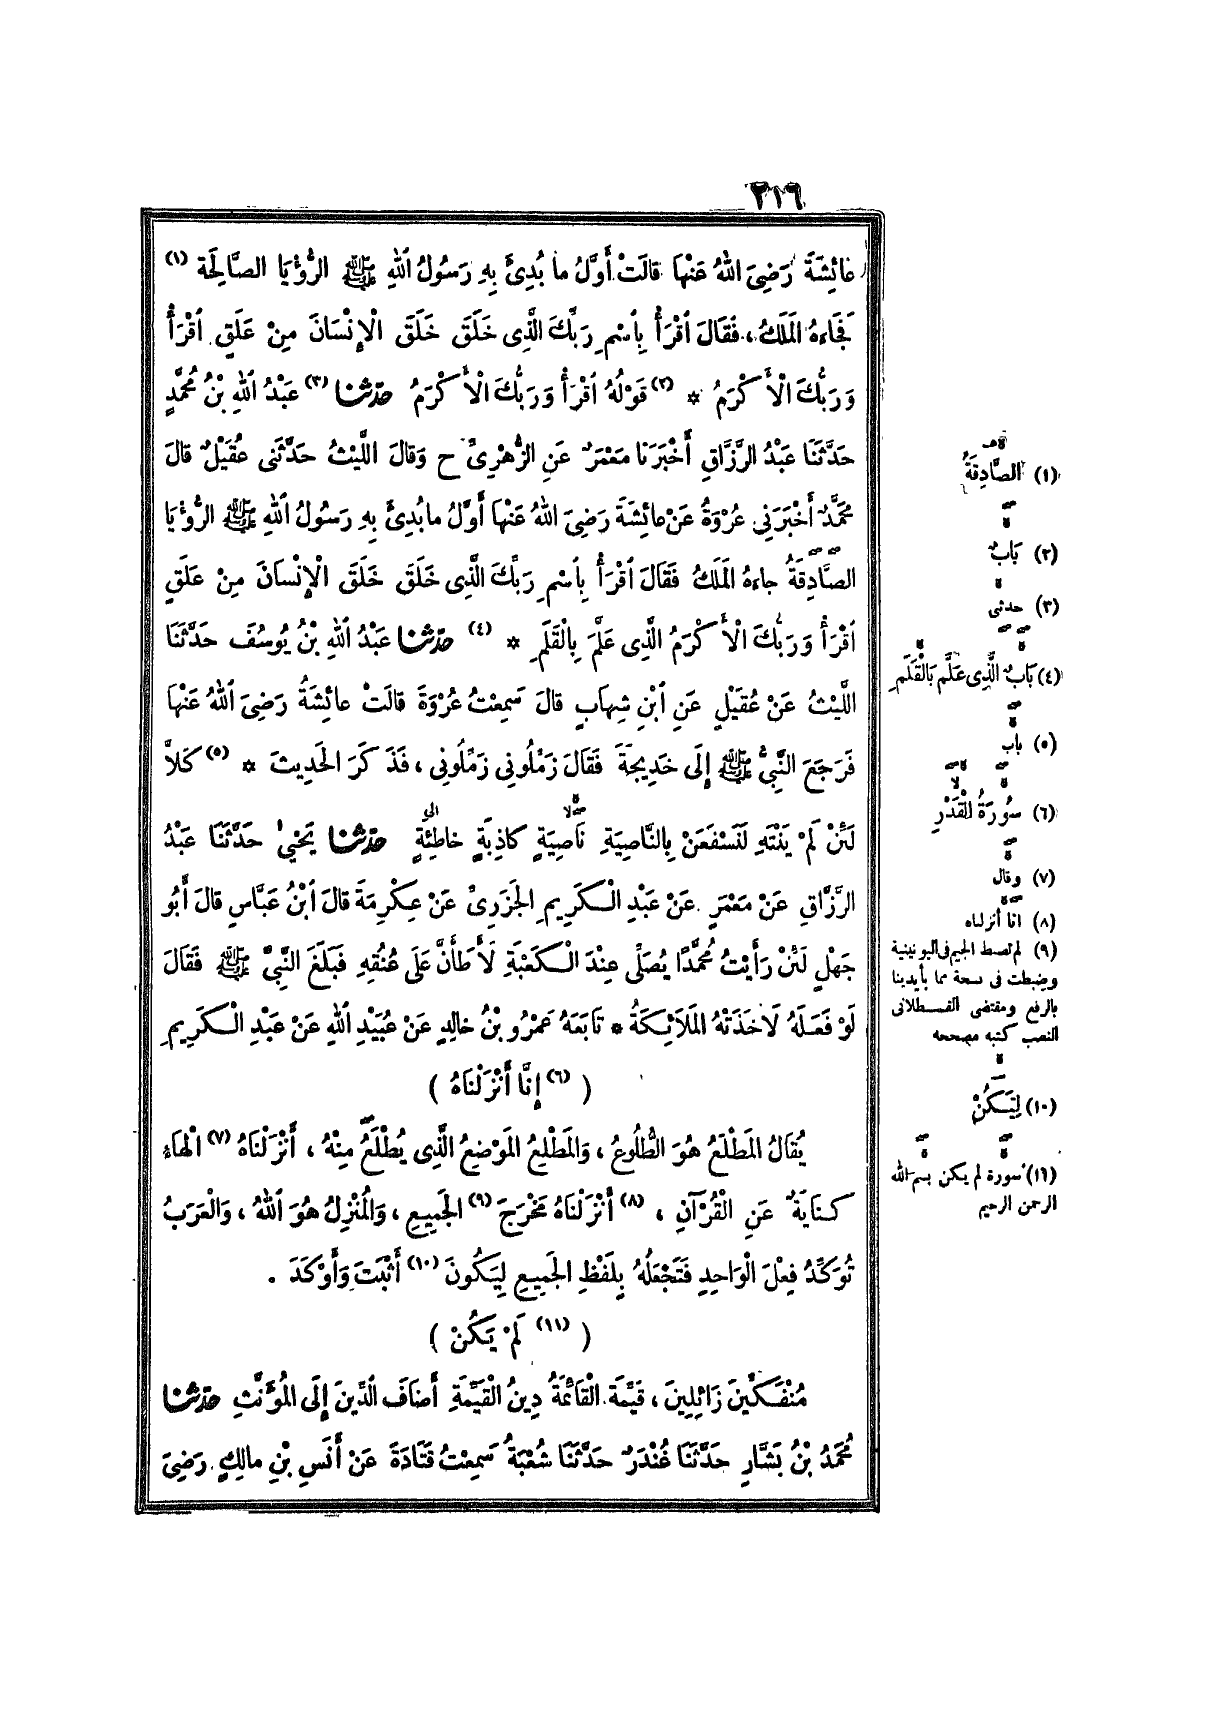 ٢١٦
عَائِشَةَ رَضِيَ اللّٰهُ عَنْهَا قَالَتْ أَوَّلُ مَا بُدِئَ بِهِ رَسُولُ اللّٰهِ ﷺ الرُّؤْيَا الصَّالِحَةُ (١)
فَجَاءَهُ الْمَلَكُ، فَقَالَ اقْرَأْ بِاسْمِ رَبِّكَ الَّذِى خَلَقَ خَلَقَ الْإِنْسَانَ مِنْ عَلَقٍ اقْرَأْ
وَرَبُّكَ الْأَكْرَمُ * (٢) قَوْلُهُ اقْرَأْ وَرَبُّكَ الْأَكْرَمُ حَدَّثَنَا (٣) عَبْدُ اللّٰهِ بْنُ مُحَمَّدٍ
حَدَّثَنَا عَبْدُ الرَّزَّاقِ أَخْبَرَنَا مَعْمَرٌ عَنِ الزُّهْرِىِّ ح وَقَالَ اللَّيْثُ حَدَّثَنِى عُقَيْلٌ قَالَ
مُحَمَّدٌ أَخْبَرَنِى عُرْوَةُ عَنْ عَائِشَةَ رَضِيَ اللّٰهُ عَنْهَا أَوَّلُ مَا بُدِئَ بِهِ رَسُولُ اللّٰهِ ﷺ الرُّؤْيَا
الصَّادِقَةُ جَاءَهُ الْمَلَكُ فَقَالَ اقْرَأْ بِاسْمِ رَبِّكَ الَّذِى خَلَقَ خَلَقَ الْإِنْسَانَ مِنْ عَلَقٍ
اقْرَأْ وَرَبُّكَ الْأَكْرَمُ الَّذِى عَلَّمَ بِالْقَلَمِ * (٤) حَدَّثَنَا عَبْدُ اللّٰهِ بْنُ يُوسُفَ حَدَّثَنَا
اللَّيْثُ عَنْ عُقَيْلٍ عَنِ ابْنِ شِهَابٍ قَالَ سَمِعْتُ عُرْوَةَ قَالَتْ عَائِشَةُ رَضِيَ اللّٰهُ عَنْهَا
فَرَجَعَ النَّبِىُّ ﷺ إِلَى خَدِيجَةَ فَقَالَ زَمِّلُونِى زَمِّلُونِى، فَذَكَرَ الْحَدِيثَ * (٥) كَلَّا
لَئِنْ لَمْ يَنْتَهِ لَنَسْفَعَنْ بِالنَّاصِيَةِ نَاصِيَةٍ كَاذِبَةٍ خَاطِئَةٍ حَدَّثَنَا يَحْيَى حَدَّثَنَا عَبْدُ
الرَّزَّاقِ عَنْ مَعْمَرٍ عَنْ عَبْدِ الْكَرِيمِ الْجَزَرِىِّ عَنْ عِكْرِمَةَ قَالَ ابْنُ عَبَّاسٍ قَالَ أَبُو
جَهْلٍ لَئِنْ رَأَيْتُ مُحَمَّدًا يُصَلِّى عِنْدَ الْكَعْبَةِ لَأَطَأَنَّ عَلَى عُنُقِهِ فَبَلَغَ النَّبِىَّ ﷺ فَقَالَ
لَوْ فَعَلَهُ لَأَخَذَتْهُ الْمَلَائِكَةُ * تَابَعَهُ عَمْرُو بْنُ خَالِدٍ عَنْ عُبَيْدِ اللّٰهِ عَنْ عَبْدِ الْكَرِيمِ
((٦) إِنَّا أَنْزَلْنَاهُ)
يُقَالُ الْمَطْلَعُ هُوَ الطُّلُوعُ، وَالْمَطْلِعُ الْمَوْضِعُ الَّذِى يُطْلَعُ مِنْهُ، أَنْزَلْنَاهُ (٧) الْهَاءُ
كِنَايَةٌ عَنِ الْقُرْآنِ، (٨) أَنْزَلْنَاهُ مَخْرَجَ (٩) الْجَمِيعِ، وَالْمُنْزِلُ هُوَ اللّٰهُ، وَالْعَرَبُ
تُوَكِّدُ فِعْلَ الْوَاحِدِ فَتَجْعَلُهُ بِلَفْظِ الْجَمِيعِ لِيَكُونَ (١٠) أَثْبَتَ وَأَوْكَدَ .
((١١) لَمْ يَكُنْ)
مُنْفَكِّينَ زَائِلِينَ، قَيِّمَةٌ الْقَائِمَةُ دِينُ الْقَيِّمَةِ أَضَافَ الدِّينَ إِلَى الْمُؤَنَّثِ حَدَّثَنَا
مُحَمَّدُ بْنُ بَشَّارٍ حَدَّثَنَا غُنْدَرٌ حَدَّثَنَا شُعْبَةُ سَمِعْتُ قَتَادَةَ عَنْ أَنَسِ بْنِ مَالِكٍ رَضِيَ
(١) الصَّادِقَةُ
(٢) بَابٌ
(٣) حدثنى
(٤) بَابٌ الَّذِى عَلَّمَ بِالْقَلَمِ
(٥) باب
(٦) سُورَةُ الْقَدْرِ
(٧) وقال
(٨) انا أنزلناه
(٩) لم تضبط الجيم فى اليونينية
وضبطت فى نسخة مما بأيدينا
بالرفع ومقتضى القسطلانى
النصب كتبه مصححه
(١٠) لِتَكُنْ
(١١) سورة لم يكن بسم الله
الرحمن الرحيم